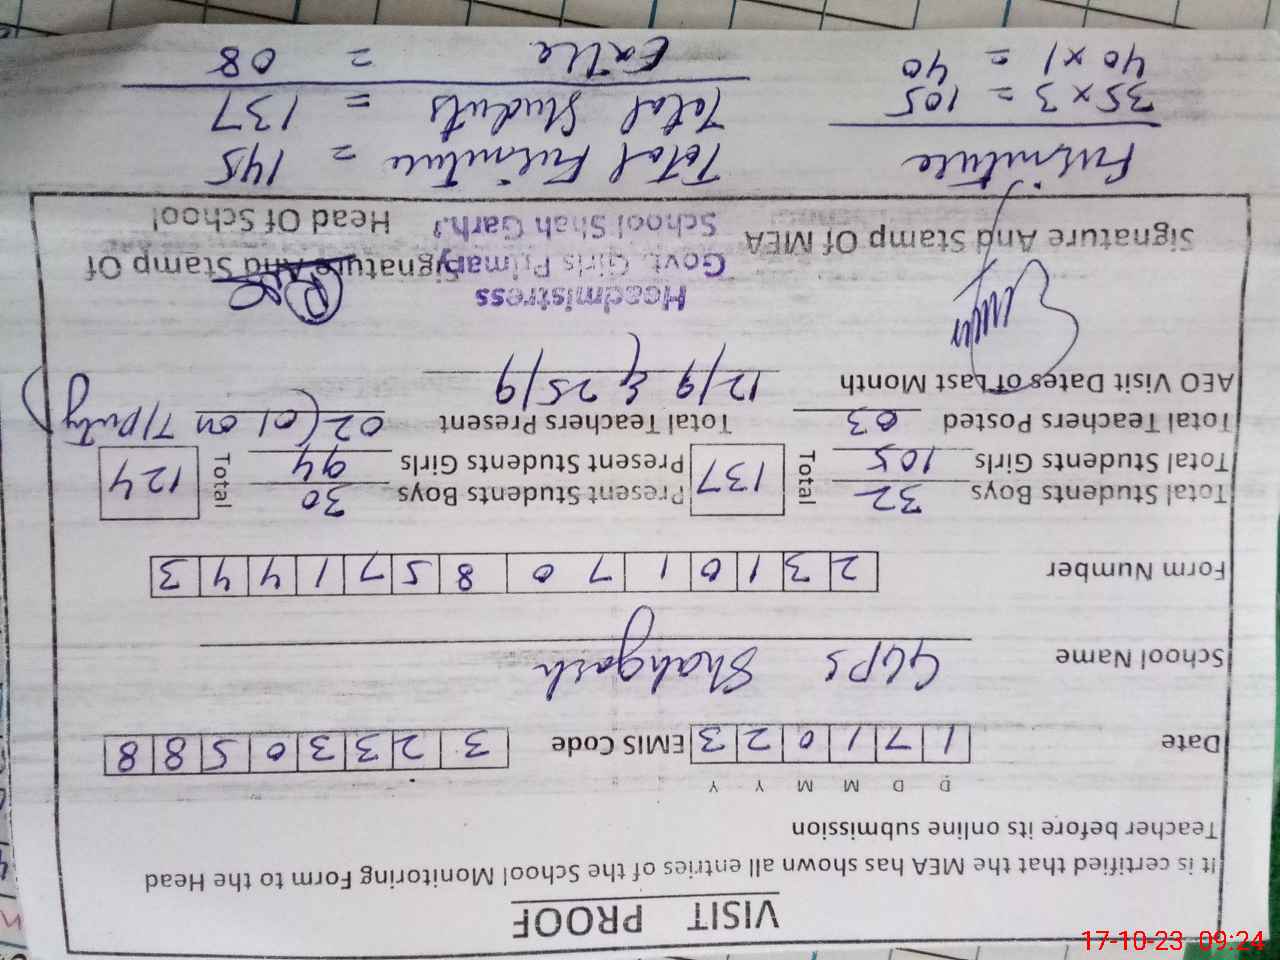 VISIT PROOF
It is certified that the MEA has shown all entries of the School Monitoring Form to the Head
Teacher before its online submission
D D M M Y Y
Date 171023 EMIS Code 32330588
School Name GGPS Shahgarh
Form Number 231011708571443
Total Students Boys 32 Total 137 Present Students Boys 30 Total 124
Total Students Girls 105 Present Students Girls 94
Total Teachers Posted 03 Total Teachers Present 02 (01 on T/Duty)
AEO Visit Dates of Last Month 12/9 & 25/9
Headmistress
Govt. Girls Primary
School Shah Garh.
Signature And Stamp Of MEA
Signature And Stamp Of
Head Of School
Furniture
35 x 3 = 105
40 x 1 = 40
Total Furniture = 145
Total Students = 137
= 08
17-10-23 09:24